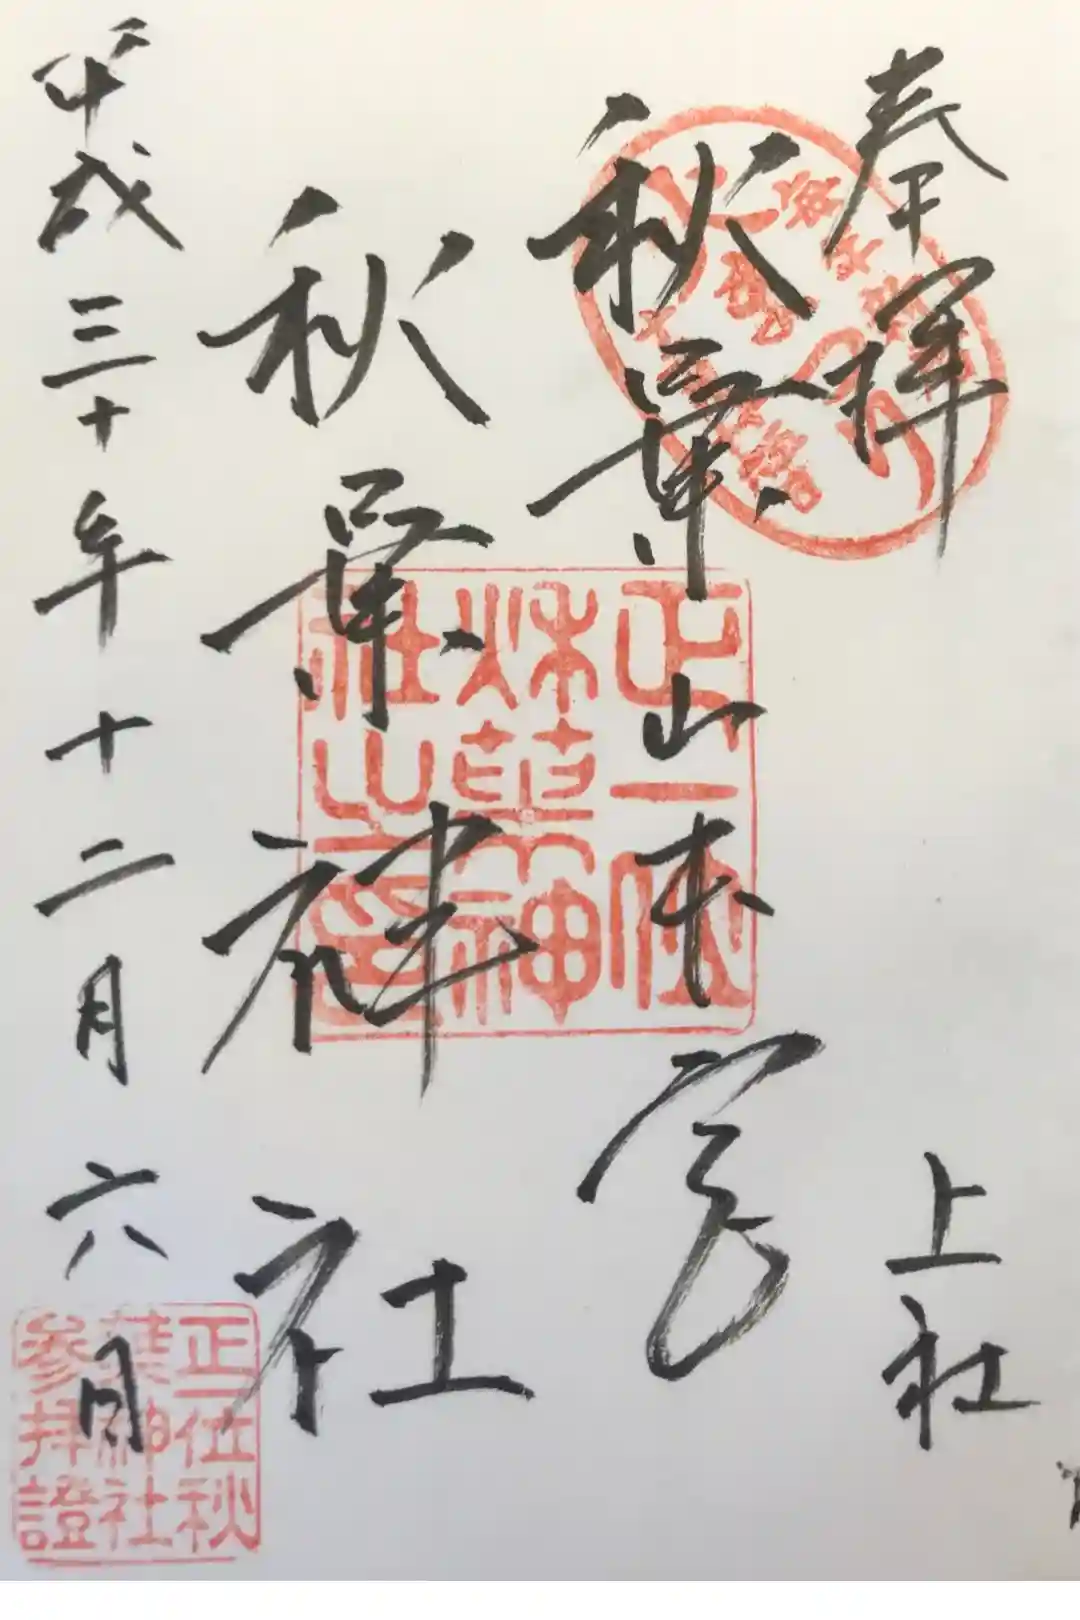 奉拝
上社
秋葉山本宮
秋葉神社
平成三十年十二月六日
正一位
秋葉神
社之印
正一位秋
葉神社
参拝證